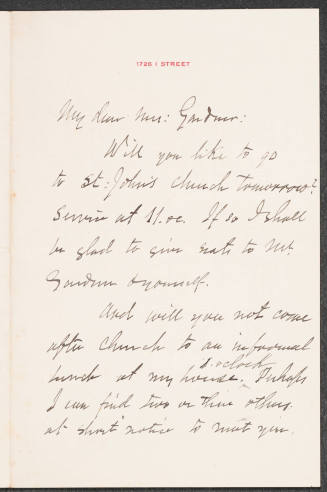 1726 I STREET
My dear Mrs: Gardner:
Will you like to go
to St: John's church tomorrow?
Service at 11.oc. If so I shall
be glad to give seats to Mr.
Gardner & yourself.
And will you not come
after church to an informal
1. o'clock
lunch at my house. Perhaps
I can find two or three others
at short notice to meet you.